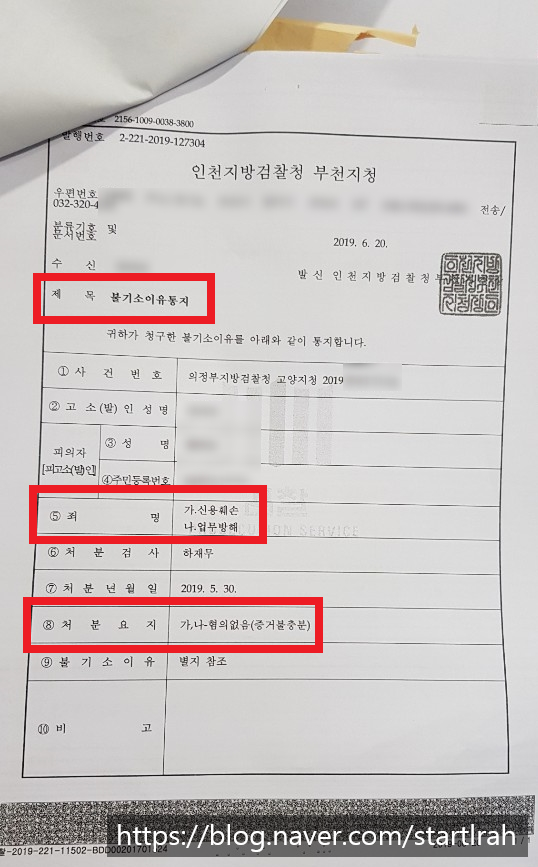 2156-1009-0038-3800
발행번호 2-221-2019-127304
인천지방검찰청 부천지청
우편번호
032-320-4
전송/
분류기호 및
문서번호
2019. 6. 20.
수 신
발 신 인천지방검찰청
제 목 불기소이유통지
귀하가 청구한 불기소이유를 아래와 같이 통지합니다.
① 사 건 번 호 의정부지방검찰청 고양지청 2019
② 고 소 (발) 인 성 명
피의자
[피고소(발)인]
③ 성 명
④주민등록번호
⑤ 죄 명 가.신용훼손
나.업무방해
SERVICE
⑥ 처 분 검 사 하재무
⑦ 처 분 년 월 일 2019. 5. 30.
⑧ 처 분 요 지 가,나-혐의없음(증거불충분)
⑨ 불 기 소 이 유 별지 참조
⑩ 비 고
-2019-221-11502-BD000201701
24
https://blog.naver.com/startlrah